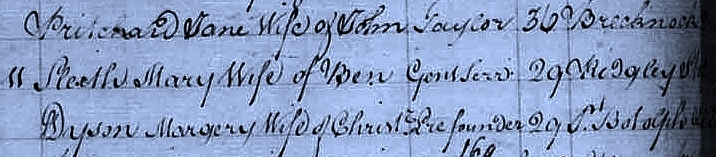 Pritchard Jane Wife of John Taylor 36 Brecknock
11 Sleeth Mary Wife of Ben Gent Serv. 29
Dyson Margery Wife of Christ.r founder 29 St. Botolphs
160